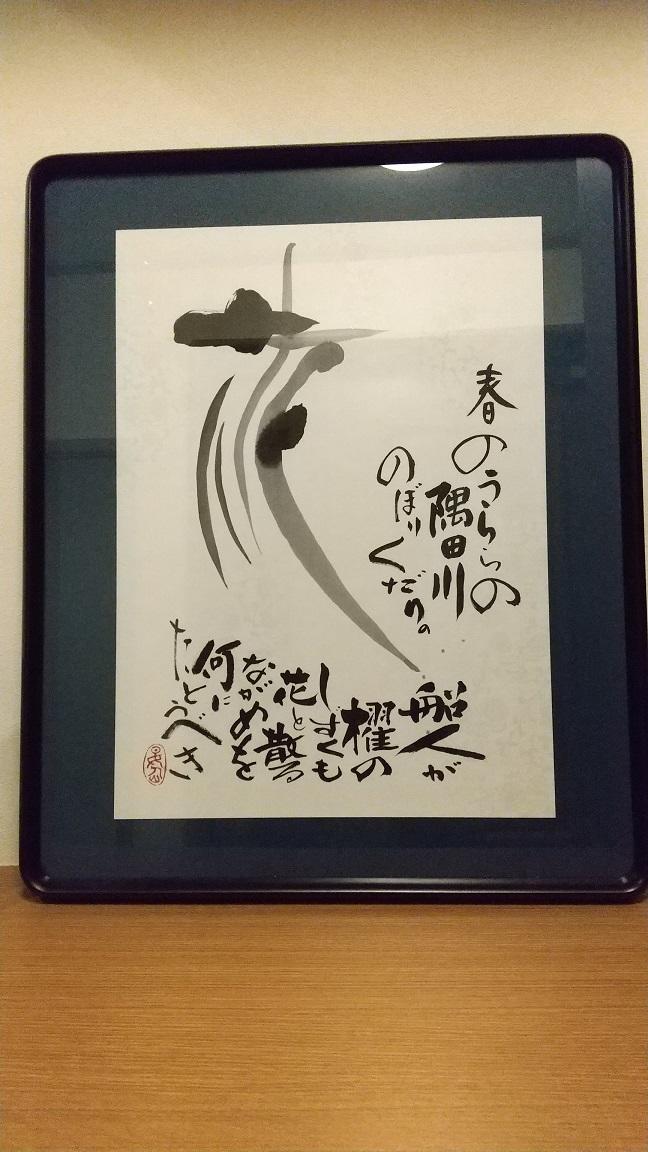 春の
うららの
隅田川
のぼり
くだりの
船人が
櫂の
しずくも
花と散る
ながめを
何に
たとうべき